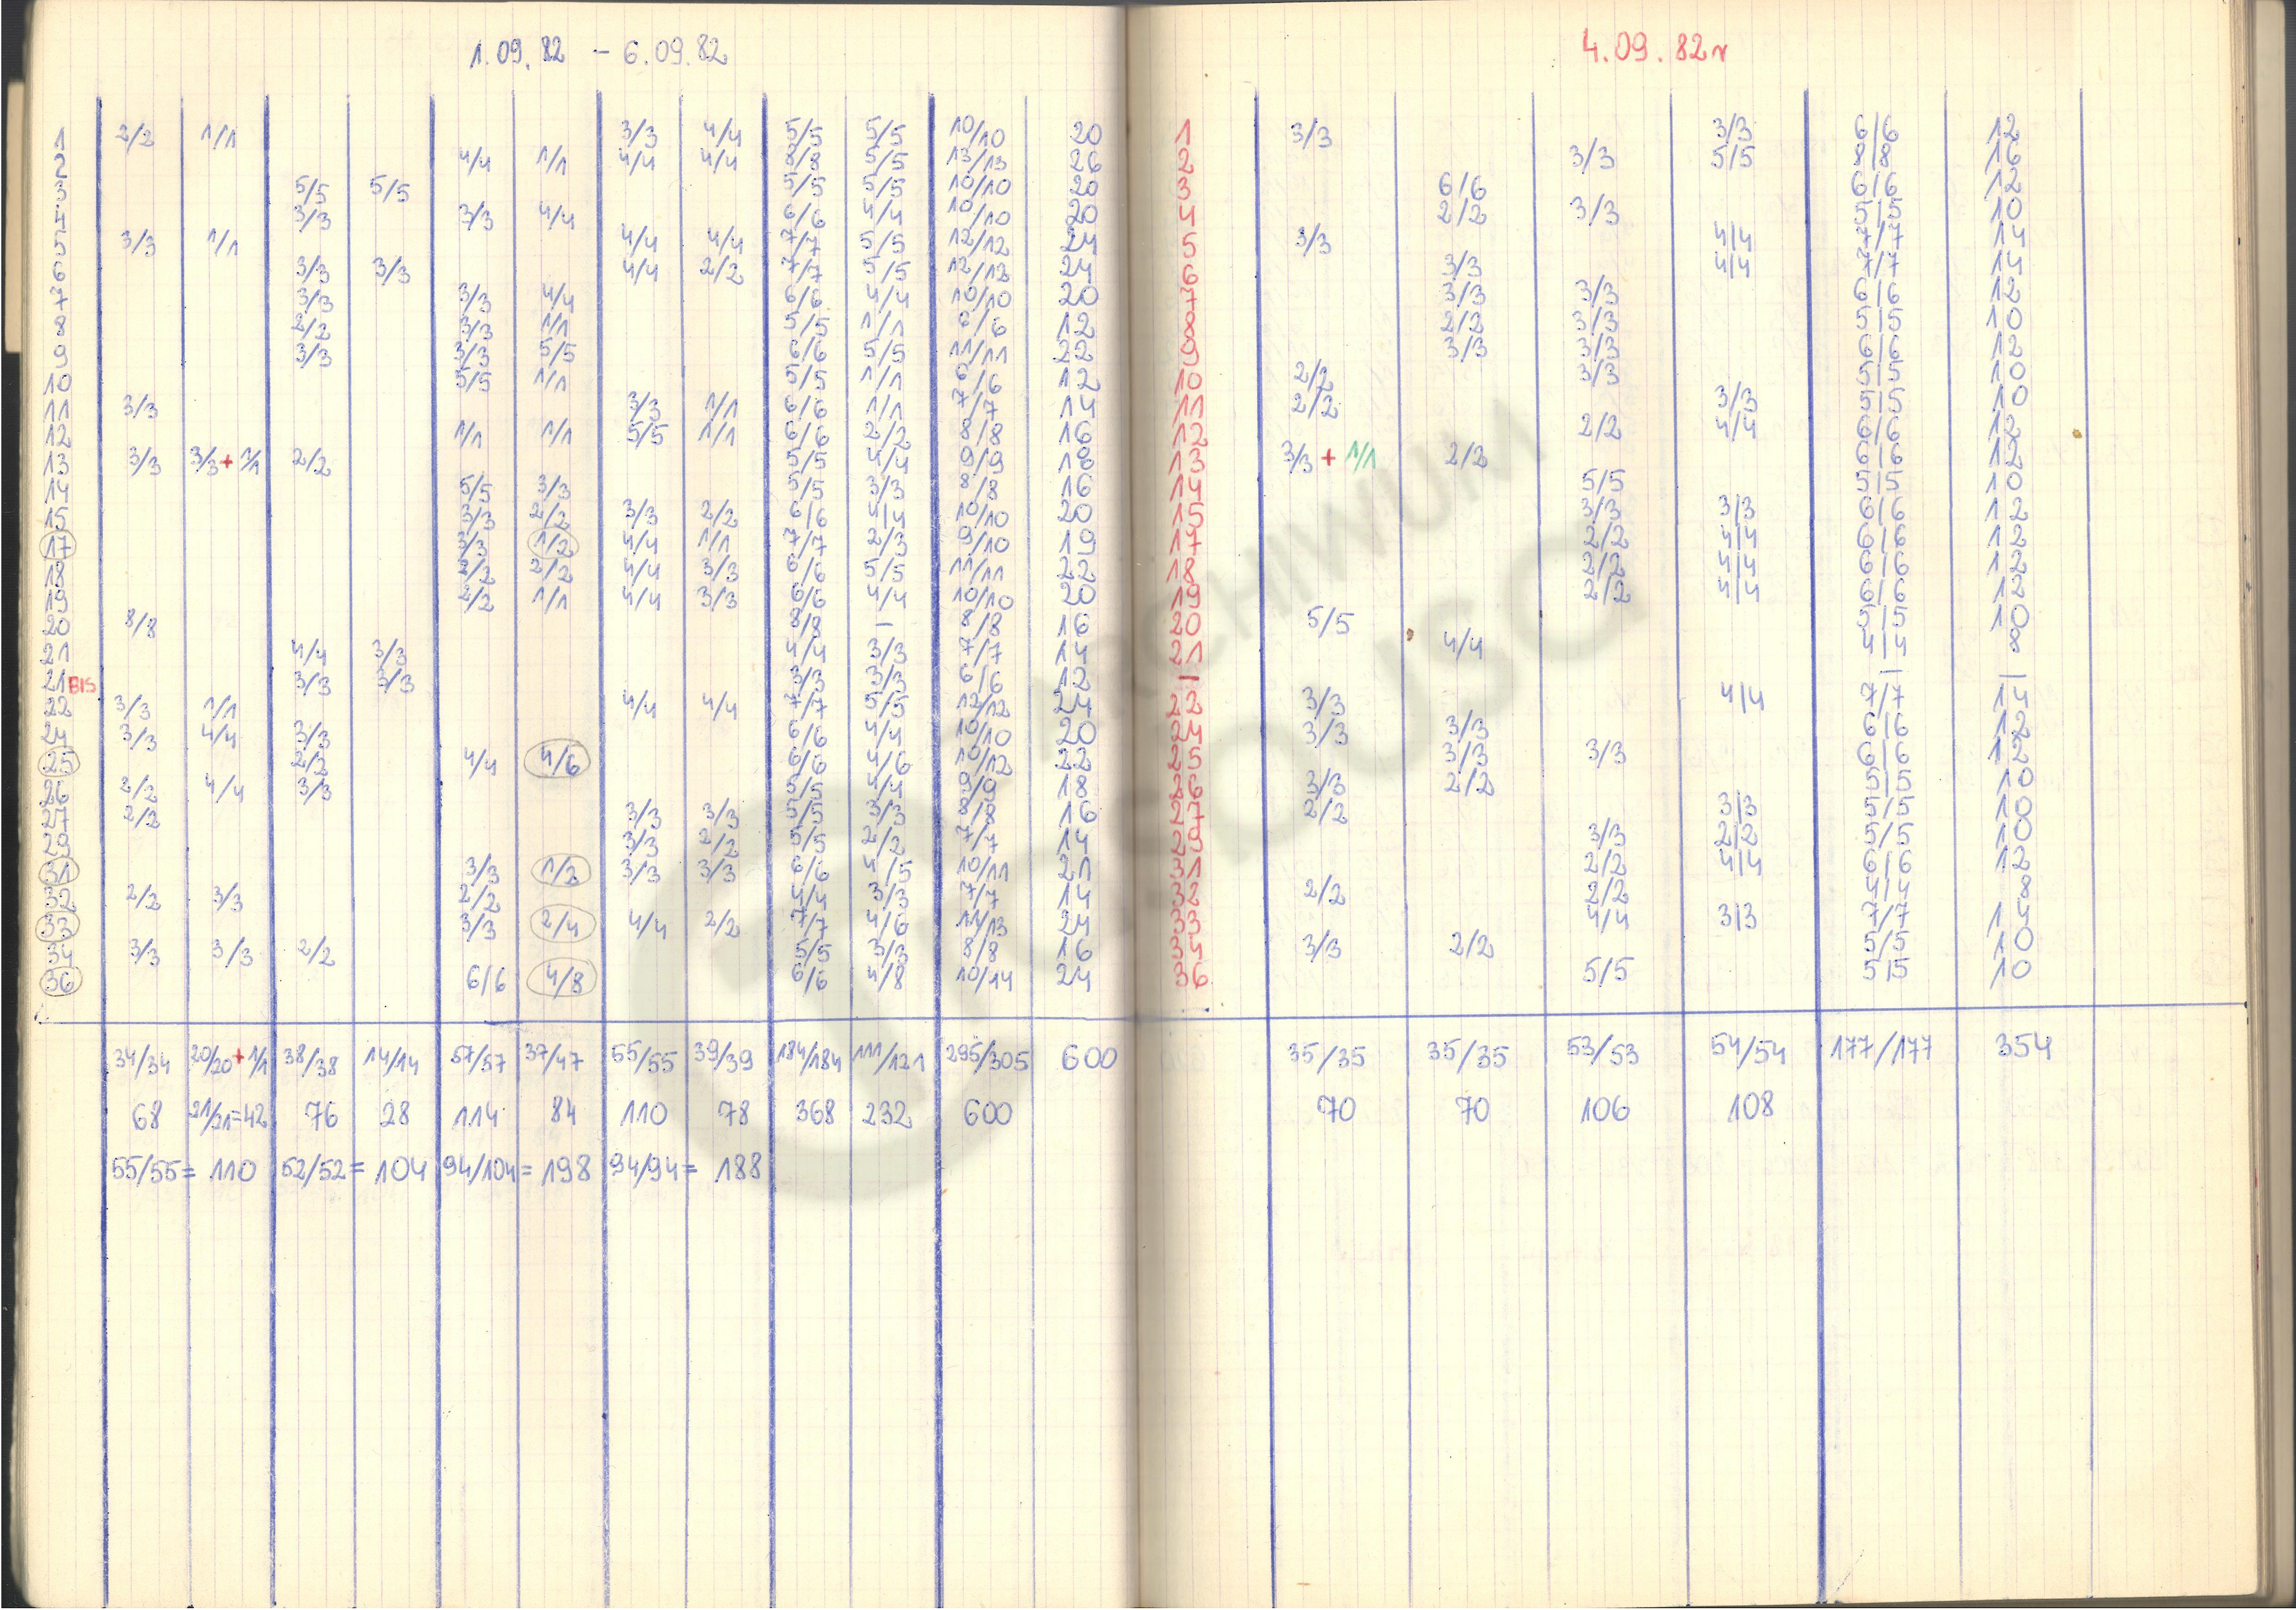 1.09.82 - 6.09.82
1 2/2 1/1 3/3 4/4 5/5 5/5 10/10 20
2 4/4 1/1 4/4 4/4 8/8 5/5 13/13 26
3 5/5 5/5 5/5 5/5 10/10 20
4 3/3 3/3 4/4 6/6 4/4 10/10 20
5 3/3 1/1 4/4 4/4 7/7 5/5 12/12 24
6 3/3 3/3 4/4 2/2 7/7 5/5 12/12 24
7 3/3 3/3 4/4 6/6 4/4 10/10 20
8 2/2 3/3 1/1 5/5 1/1 6/6 12
9 3/3 3/3 5/5 6/6 5/5 11/11 22
10 5/5 1/1 5/5 1/1 6/6 12
11 3/3 3/3 1/1 6/6 1/1 7/7 14
12 1/1 1/1 5/5 1/1 6/6 2/2 8/8 16
13 3/3 3/3 + 1/1 2/2 5/5 4/4 9/9 18
14 5/5 3/3 5/5 3/3 8/8 16
15 3/3 2/2 3/3 2/2 6/6 4/4 10/10 20
17 3/3 1/2 4/4 1/1 7/7 2/3 9/10 19
18 2/2 2/2 4/4 3/3 6/6 5/5 11/11 22
19 2/2 1/1 4/4 3/3 6/6 4/4 10/10 20
20 8/8 8/8 - 8/8 16
21 4/4 3/3 4/4 3/3 7/7 14
21 BIS 3/3 3/3 3/3 3/3 6/6 12
22 3/3 1/1 4/4 4/4 7/7 5/5 12/12 24
24 3/3 4/4 3/3 6/6 4/4 10/10 20
25 2/2 4/4 4/6 6/6 4/6 10/12 22
26 2/2 4/4 3/3 5/5 4/4 9/9 18
27 2/2 3/3 3/3 5/5 3/3 8/8 16
29 3/3 2/2 5/5 2/2 7/7 14
31 3/3 1/2 3/3 3/3 6/6 4/5 10/11 21
32 2/2 3/3 2/2 4/4 3/3 7/7 14
33 3/3 2/4 4/4 2/2 7/7 4/6 11/13 24
34 3/3 3/3 2/2 5/5 3/3 8/8 16
36 6/6 4/8 6/6 4/8 10/14 24
34/34 20/20+1/1 38/38 14/14 57/57 37/47 55/55 39/39 184/184 111/121 295/305 600
68 21/21=42 76 28 114 84 110 78 368 232 600
55/55 = 110 52/52 = 104 94/104 = 198 94/94 = 188
4.09.82r
1 3/3 3/3 6/6 12
2 3/3 5/5 8/8 16
3 6/6 6/6 12
4 2/2 3/3 5/5 10
5 3/3 4/4 7/7 14
6 3/3 4/4 7/7 14
7 3/3 3/3 6/6 12
8 2/2 3/3 5/5 10
9 3/3 3/3 6/6 12
10 2/2 3/3 5/5 10
11 2/2 3/3 5/5 10
12 2/2 4/4 6/6 12
13 3/3 + 1/1 2/2 6/6 12
14 5/5 5/5 10
15 3/3 3/3 6/6 12
17 2/2 4/4 6/6 12
18 2/2 4/4 6/6 12
19 2/2 4/4 6/6 12
20 5/5 5/5 10
21 4/4 4/4 8
- - -
22 3/3 4/4 7/7 14
24 3/3 3/3 6/6 12
25 3/3 3/3 6/6 12
26 3/3 2/2 5/5 10
27 2/2 3/3 5/5 10
29 3/3 2/2 5/5 10
31 2/2 4/4 6/6 12
32 2/2 2/2 4/4 8
33 4/4 3/3 7/7 14
34 3/3 2/2 5/5 10
36 5/5 5/5 10
35/35 35/35 53/53 54/54 177/177 354
70 70 106 108